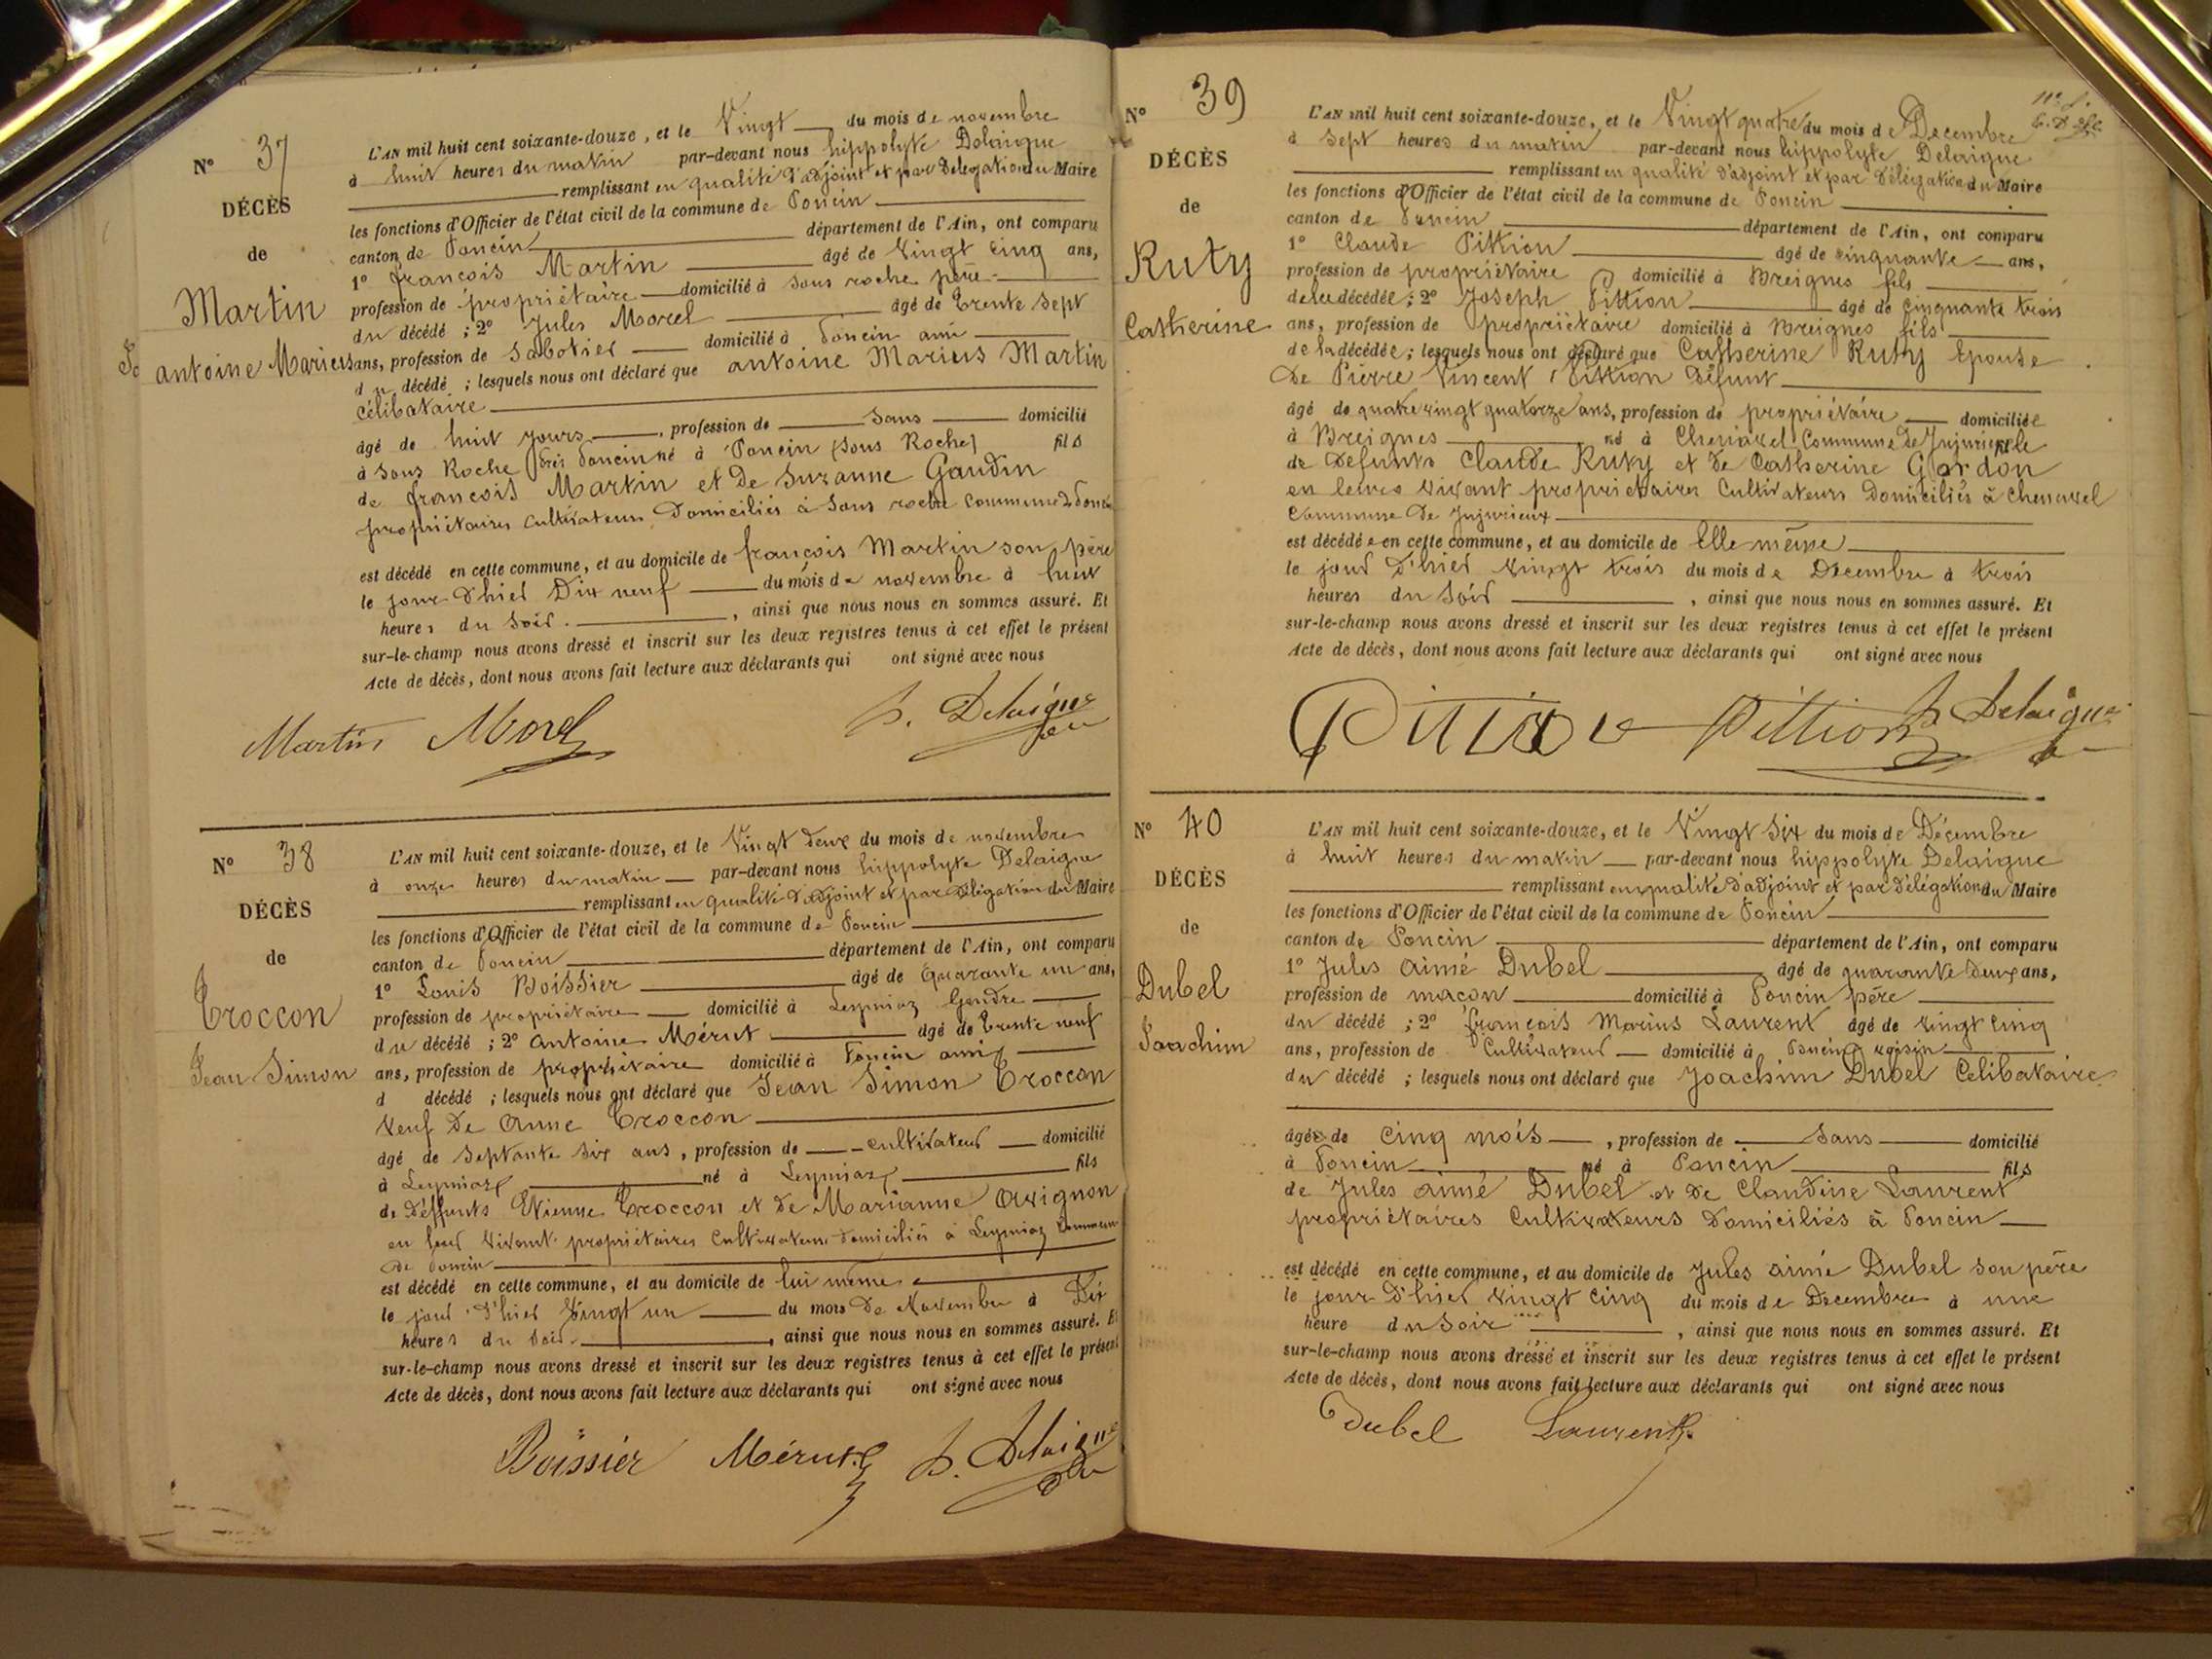 N° 37
DÉCÈS
de
Martin
antoine Marius
L'AN mil huit cent soixante-douze, et le Vingt du mois de novembre
à huit heures du matin par-devant nous hippolyte Delaigue
remplissant en qualité d'adjoint et par Délégation du Maire
les fonctions d'Officier de l'état civil de la commune de Poncin
canton de Poncin département de l'Ain, ont comparu
1° françois Martin âgé de vingt cinq ans,
profession de propriétaire domicilié à sous roche père
du décédé ; 2° Jules Morel âgé de trente sept
ans, profession de sabotier domicilié à Poncin ami
du décédé ; lesquels nous ont déclaré que antoine Marius Martin
célibataire
âgé de huit jours, profession de sans domicilié
à sous Roche près Poncin né à Poncin (sous Roche) fils
de françois Martin et de Suzanne Gaudin
propriétaires cultivateurs Domiciliés à sous roche Commune de Poncin
est décédé en cette commune, et au domicile de françois Martin son père
le jour d'hier Dix neuf du mois de novembre à huit
heures du soir. , ainsi que nous nous en sommes assuré. Et
sur-le-champ nous avons dressé et inscrit sur les deux registres tenus à cet effet le présent
Acte de décès, dont nous avons fait lecture aux déclarants qui ont signé avec nous
Martin Morel h. Delaigue
N° 38
DÉCÈS
de
Troccon
Jean Simon
L'AN mil huit cent soixante-douze, et le Vingt deux du mois de novembre
à onze heures du matin par-devant nous hippolyte Delaigue
remplissant en qualité d'adjoint et par délégation du Maire
les fonctions d'Officier de l'état civil de la commune de Poncin
canton de Poncin département de l'Ain, ont comparu
1° Louis Boissier âgé de Quarante un ans,
profession de propriétaire domicilié à Leymiaz Gendre
du décédé ; 2° antoine Mérut âgé de trente neuf
ans, profession de propriétaire domicilié à Poncin ami
d décédé ; lesquels nous ont déclaré que Jean Simon Troccon
veuf De Anne Troccon
âgé de septante six ans, profession de cultivateur domicilié
à Leymiaz né à Leymiaz fils
de Déffunts Etienne Troccon et de Marianne Avignon
en leur vivant propriétaires Cultivateurs domiciliés à Leymiaz Commune
de Poncin
est décédé en cette commune, et au domicile de lui même
le jour d'hier Vingt un du mois De Novembre à Dix
heures du soir. , ainsi que nous nous en sommes assuré. Et
sur-le-champ nous avons dressé et inscrit sur les deux registres tenus à cet effet le présent
Acte de décès, dont nous avons fait lecture aux déclarants qui ont signé avec nous
Boissier Mérut h. Delaigue
N° 39
DÉCÈS
de
Ruty
Catherine
L'AN mil huit cent soixante-douze, et le Vingt quatre du mois de Decembre
à sept heures du matin par-devant nous hippolyte Delaigue
remplissant en qualité d'adjoint et par Délégation du Maire
les fonctions d'Officier de l'état civil de la commune de Poncin
canton de Poncin département de l'Ain, ont comparu
1° Claude Pittion âgé de cinquante ans,
profession de propriétaire domicilié à Breignes fils
de la décédée ; 2° Joseph Pittion âgé de cinquante trois
ans, profession de propriétaire domicilié à Breignes fils
de la décédée ; lesquels nous ont déclaré que Catherine Ruty Epouse
De Pierre Vincent Pittion Défunt
âgé de quatre vingt quatorze ans, profession de propriétaire domiciliée
à Breignes né à Chenavel Commune de Jujurieux fille
de Defunts Claude Ruty et De Catherine Gardon
en leurs vivant propriétaires Cultivateurs Domiciliés à Chenavel
Commune De Jujurieux
est décédée en cette commune, et au domicile de Elle même
le jour d'hier vingt trois du mois de Décembre à trois
heures du soir , ainsi que nous nous en sommes assuré. Et
sur-le-champ nous avons dressé et inscrit sur les deux registres tenus à cet effet le présent
Acte de décès, dont nous avons fait lecture aux déclarants qui ont signé avec nous
Pittion Pittion h Delaigue
N° 40
DÉCÈS
de
Dubel
Joachim
L'AN mil huit cent soixante-douze, et le Vingt six du mois de Décembre
à huit heures du matin par-devant nous hippolyte Delaigue
remplissant en qualité d'adjoint et par délégation du Maire
les fonctions d'Officier de l'état civil de la commune de Poncin
canton de Poncin département de l'Ain, ont comparu
1° Jules aimé Dubel âgé de quarante deux ans,
profession de maçon domicilié à Poncin père
du décédé ; 2° françois Marius Laurent âgé de vingt cinq
ans, profession de Cultivateur domicilié à Poncin voisin
du décédé ; lesquels nous ont déclaré que Joachim Dubel Célibataire
âgé de cinq mois , profession de sans domicilié
à Poncin né à Poncin fils
de Jules aimé Dubel et de Claudine Laurent
propriétaires Cultivateurs Domiciliés à Poncin
est décédé en cette commune, et au domicile de Jules aimé Dubel son père
le jour d'hier vingt cinq du mois de Decembre à une
heure du soir , ainsi que nous nous en sommes assuré. Et
sur-le-champ nous avons dressé et inscrit sur les deux registres tenus à cet effet le présent
Acte de décès, dont nous avons fait lecture aux déclarants qui ont signé avec nous
Dubel Laurent